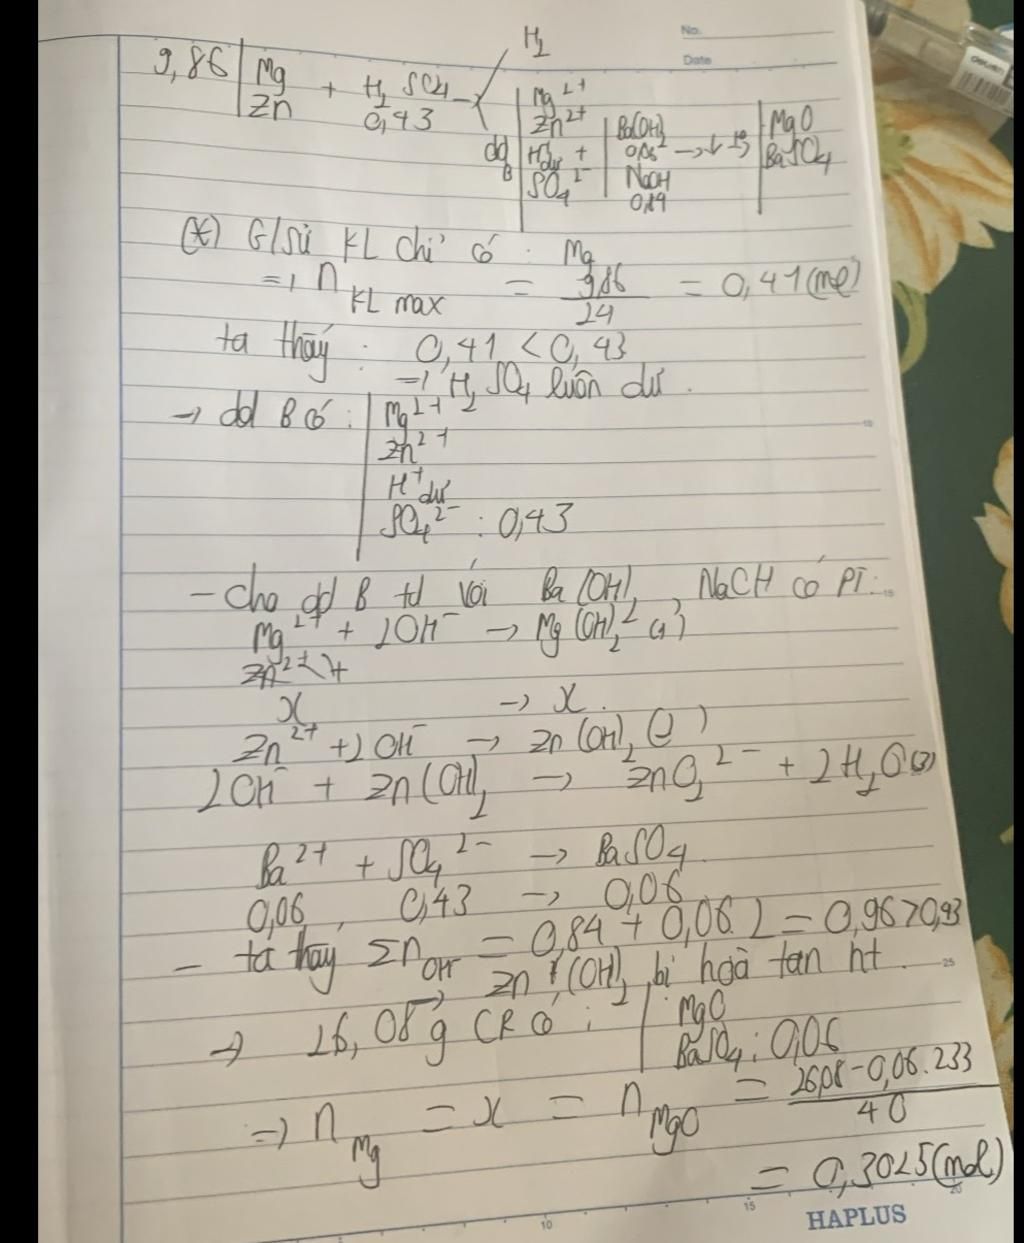 No.
Date
9,86 | Mg + H2SO4 → H2
Zn 0,43
dd B | Mg2+
Zn2+ | Ba(OH)2 | MgO
H+dư + 0,06 → ↓ → BaSO4
SO4 2- | NaOH
(*) G/sử KL chỉ có : Mg
=> n KL max = 9,86/24 = 0,41 (mol)
ta thấy : 0,41 < 0,43
=> H2SO4 luôn dư.
→ dd B có : | Mg2+
Zn2+
H+ dư
SO4 2- : 0,43
- cho dd B td với Ba(OH)2, NaOH có PT:
Mg2+ + 2OH- → Mg(OH)2 (1)
x → x.
Zn2+ + 2OH- → Zn(OH)2 (2)
2OH- + Zn(OH)2 → ZnO2 2- + 2H2O (3)
Ba2+ + SO4 2- → BaSO4
0,06 , 0,43 → 0,06
- ta thấy ΣnOH- = 0,84 + 0,06.2 = 0,96 > 0,93
→ Zn(OH)2 bị hoà tan ht.
→ 26,08 g CR có : | MgO
BaSO4 : 0,06
=> nMg = x = nMgO = 26,08 - 0,06.233 / 40
= 0,3025 (mol)
10 15 20
HAPLUS
deli